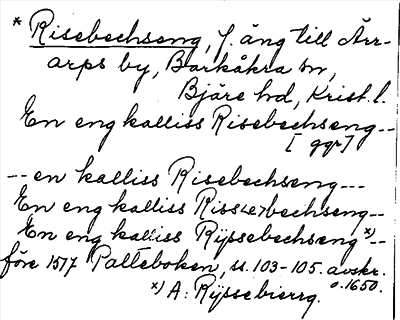 * Risebechseng, f. äng till Ärr-
arps by, Barkåkra sn,
Bjäre hd, Krist. l.
En eng kalliss Risebechseng--
[ ggr]
--en kalliss Risebechseng---
En eng kalliss Riss<e>bechseng--
En eng kalliss Rijssebechseng*)--
före 1577 Palleboken, ss. 103-105. avskr.
o. 1650.
*) A: Rijssebierrg.